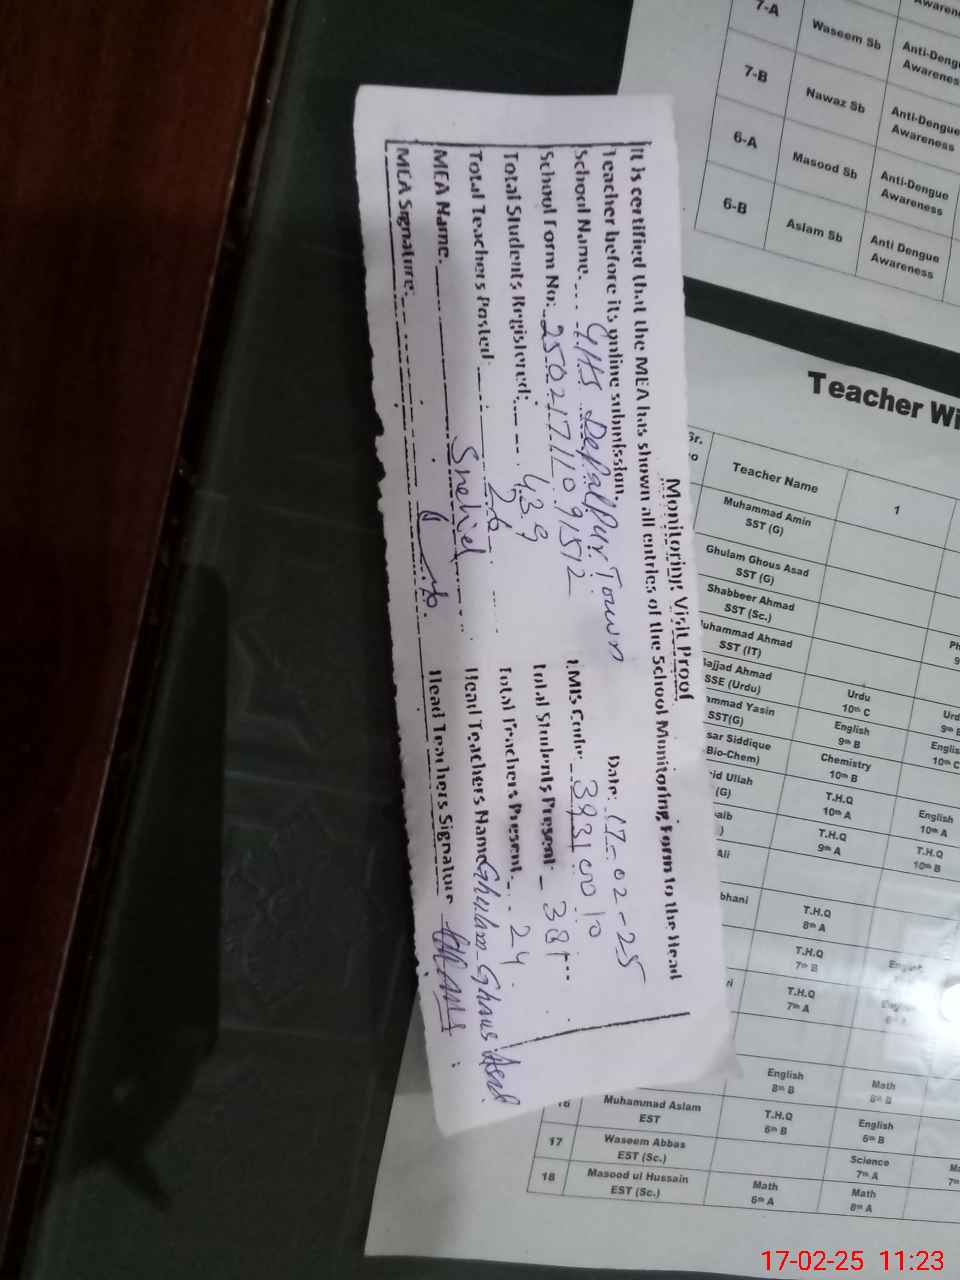 Monitoring Visit Proof
It is certified that the MEA has shown all entries of the School Monitoring Form to the Head
Teacher before its online submission. Date: 17-02-25
School Name: GHS Depalpur Town EMIS Code: 39310010
School Form No: 25021711091512 Total Students Present: 381
Total Students Registered: 439 Total Teachers Present: 24
Total Teachers Posted: 26 Head Teachers Name Ghulam Ghous Asad
MEA Name: Head Teachers Signature
MEA Signature:
7-A Waseem Sb Anti-Dengue Awareness
7-B Nawaz Sb Anti-Dengue Awareness
6-A Masood Sb Anti-Dengue Awareness
6-B Aslam Sb Anti Dengue Awareness
Teacher Wi
Sr. Teacher Name 1
Muhammad Amin SST (G)
Ghulam Ghous Asad SST (G)
Shabbeer Ahmad SST (Sc.)
uhammad Ahmad SST (IT) Ph
ajjad Ahmad SSE (Urdu) Urdu 10th C Urd
ammad Yasin SST(G) English 9th B Englis 10th C
sar Siddique Bio-Chem) Chemistry 10th B
id Ullah (G) T.H.Q 10th A English 10th A
T.H.Q 9th A T.H.Q 10th B
Ali
bhani T.H.Q 8th A
T.H.Q 7th B
ri T.H.Q 7th A
English 8th B Math 8th B
16 Muhammad Aslam EST T.H.Q 6th B English 6th B
17 Waseem Abbas EST (Sc.) Science 7th A
18 Masood ul Hussain EST (Sc.) Math 6th A Math 8th A
17-02-25 11:23